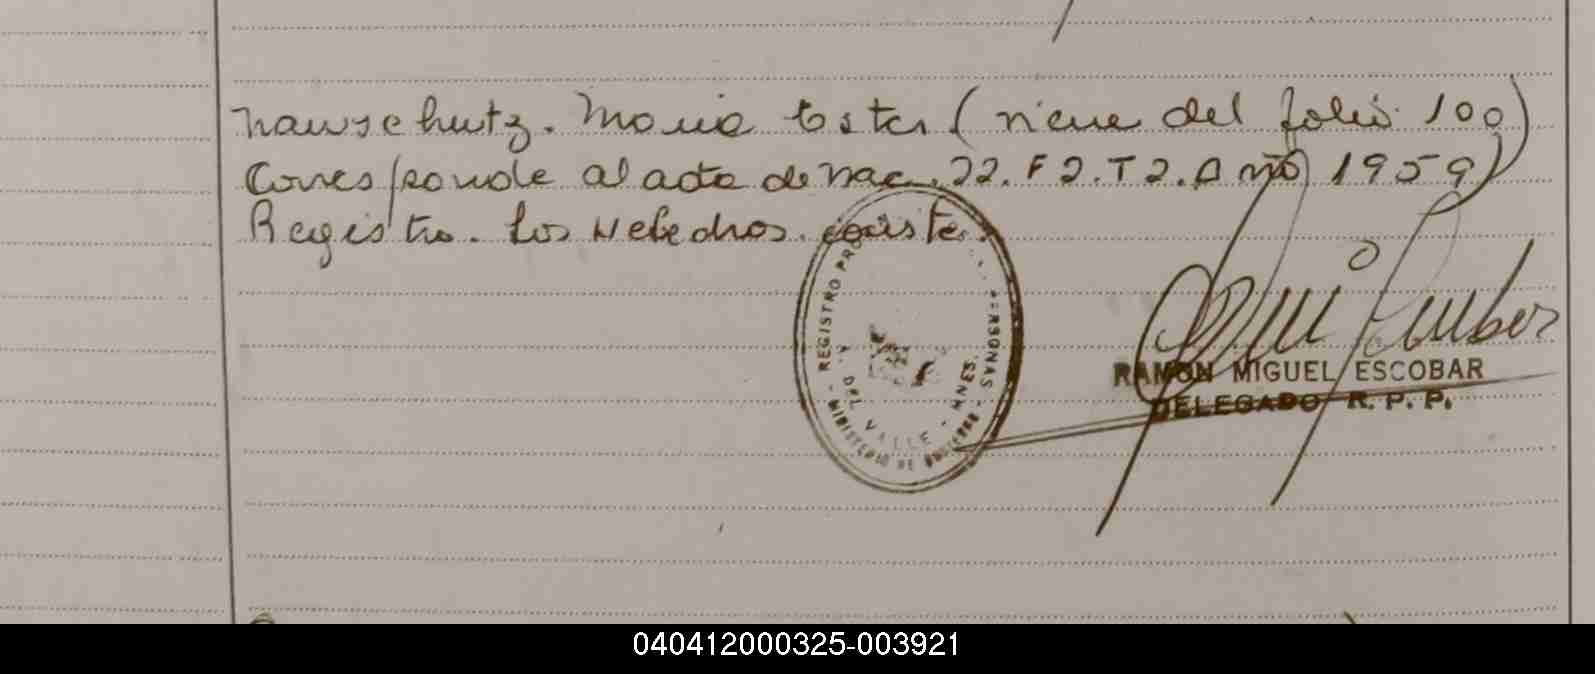 Nauschutz. Maria Ester (viene del folio 100)
Corresponde al acta de nac. 22. F 2. T 2. Año 1959)
Registro. Los Helechos. conste.
REGISTRO PR
PERSONAS -
MINISTERIO DE
V. DEL VALLE - MNES.
RAMON MIGUEL ESCOBAR
DELEGADO R. P. P.
040412000325-003921